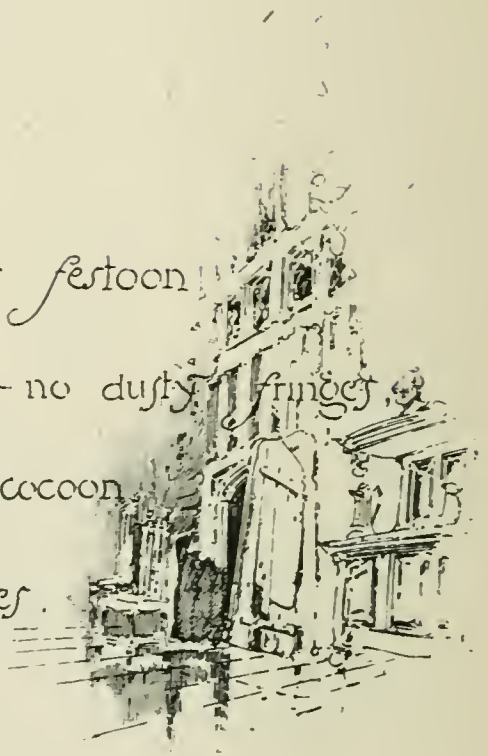 festoon
- no dusty fringes,
cocoon